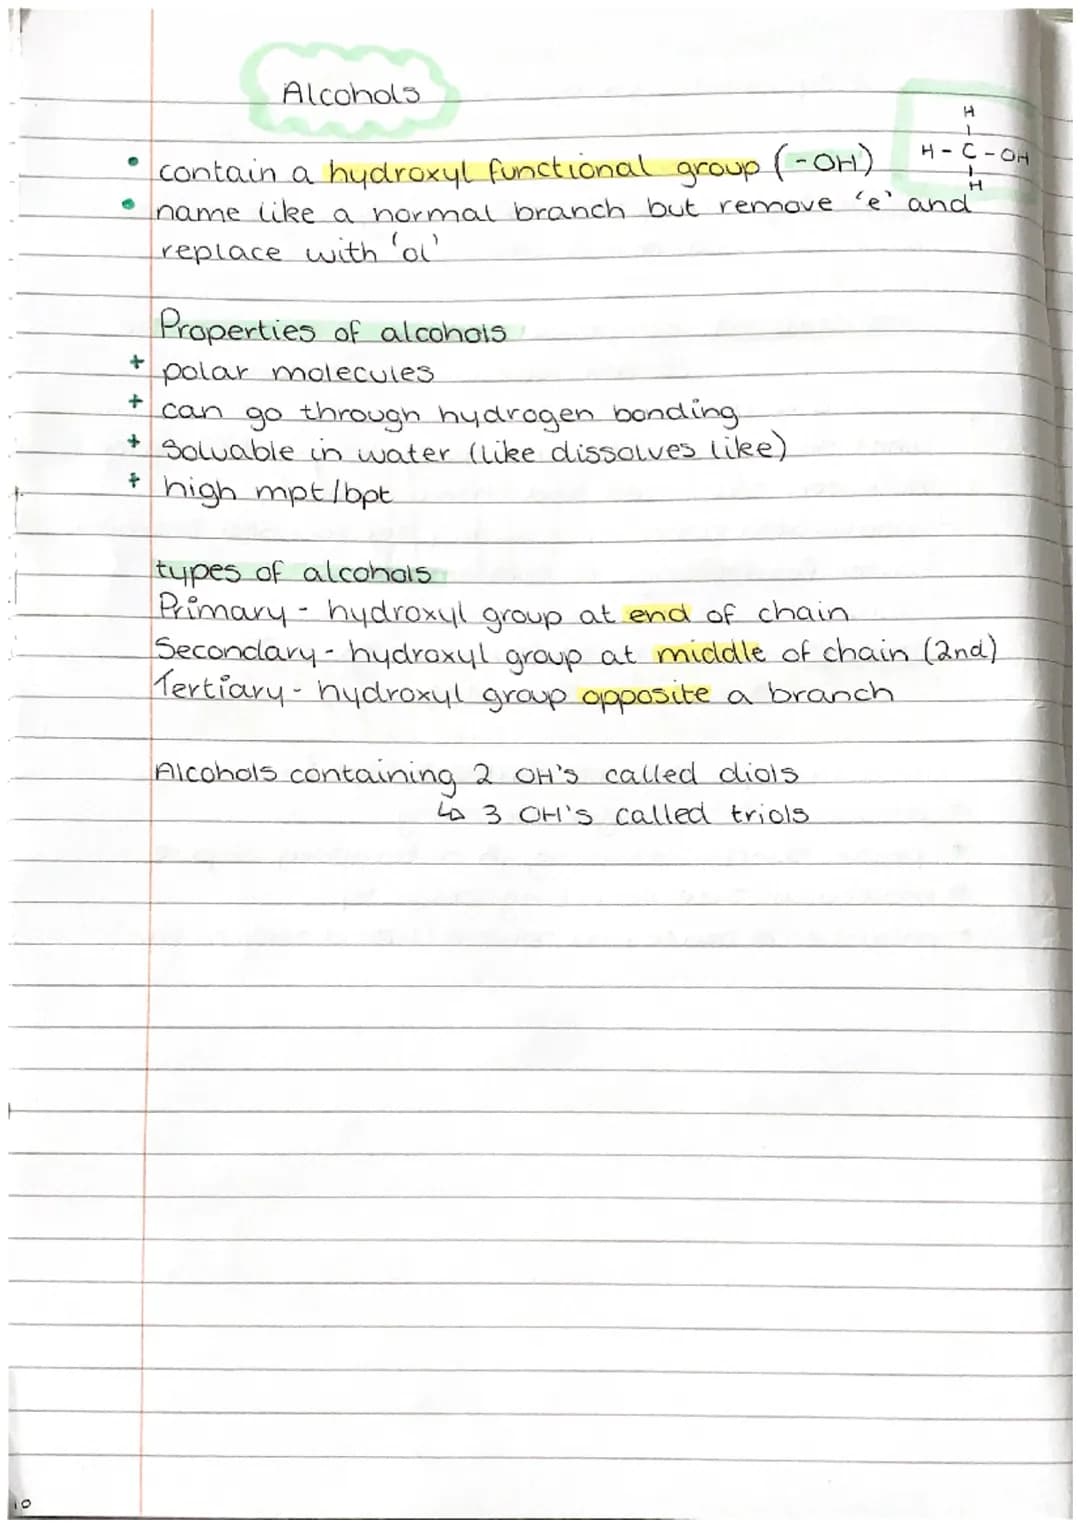 Alcohols
H
H - C - OH
H
contain a hydroxyl functional group (-OH)
name like a normal branch but remove 'e' and
replace with 'ol'
Properties of alcohols
+ polar molecules
+ can go through hydrogen bonding
+ Soluable in water (like dissolves like)
+ high mpt/bpt
types of alcohols
Primary - hydroxyl group at end of chain
Secondary - hydroxyl group at middle of chain (2nd)
Tertiary - hydroxyl group opposite a branch
Alcohols containing 2 OH's called diols
↳ 3 OH's called triols
10